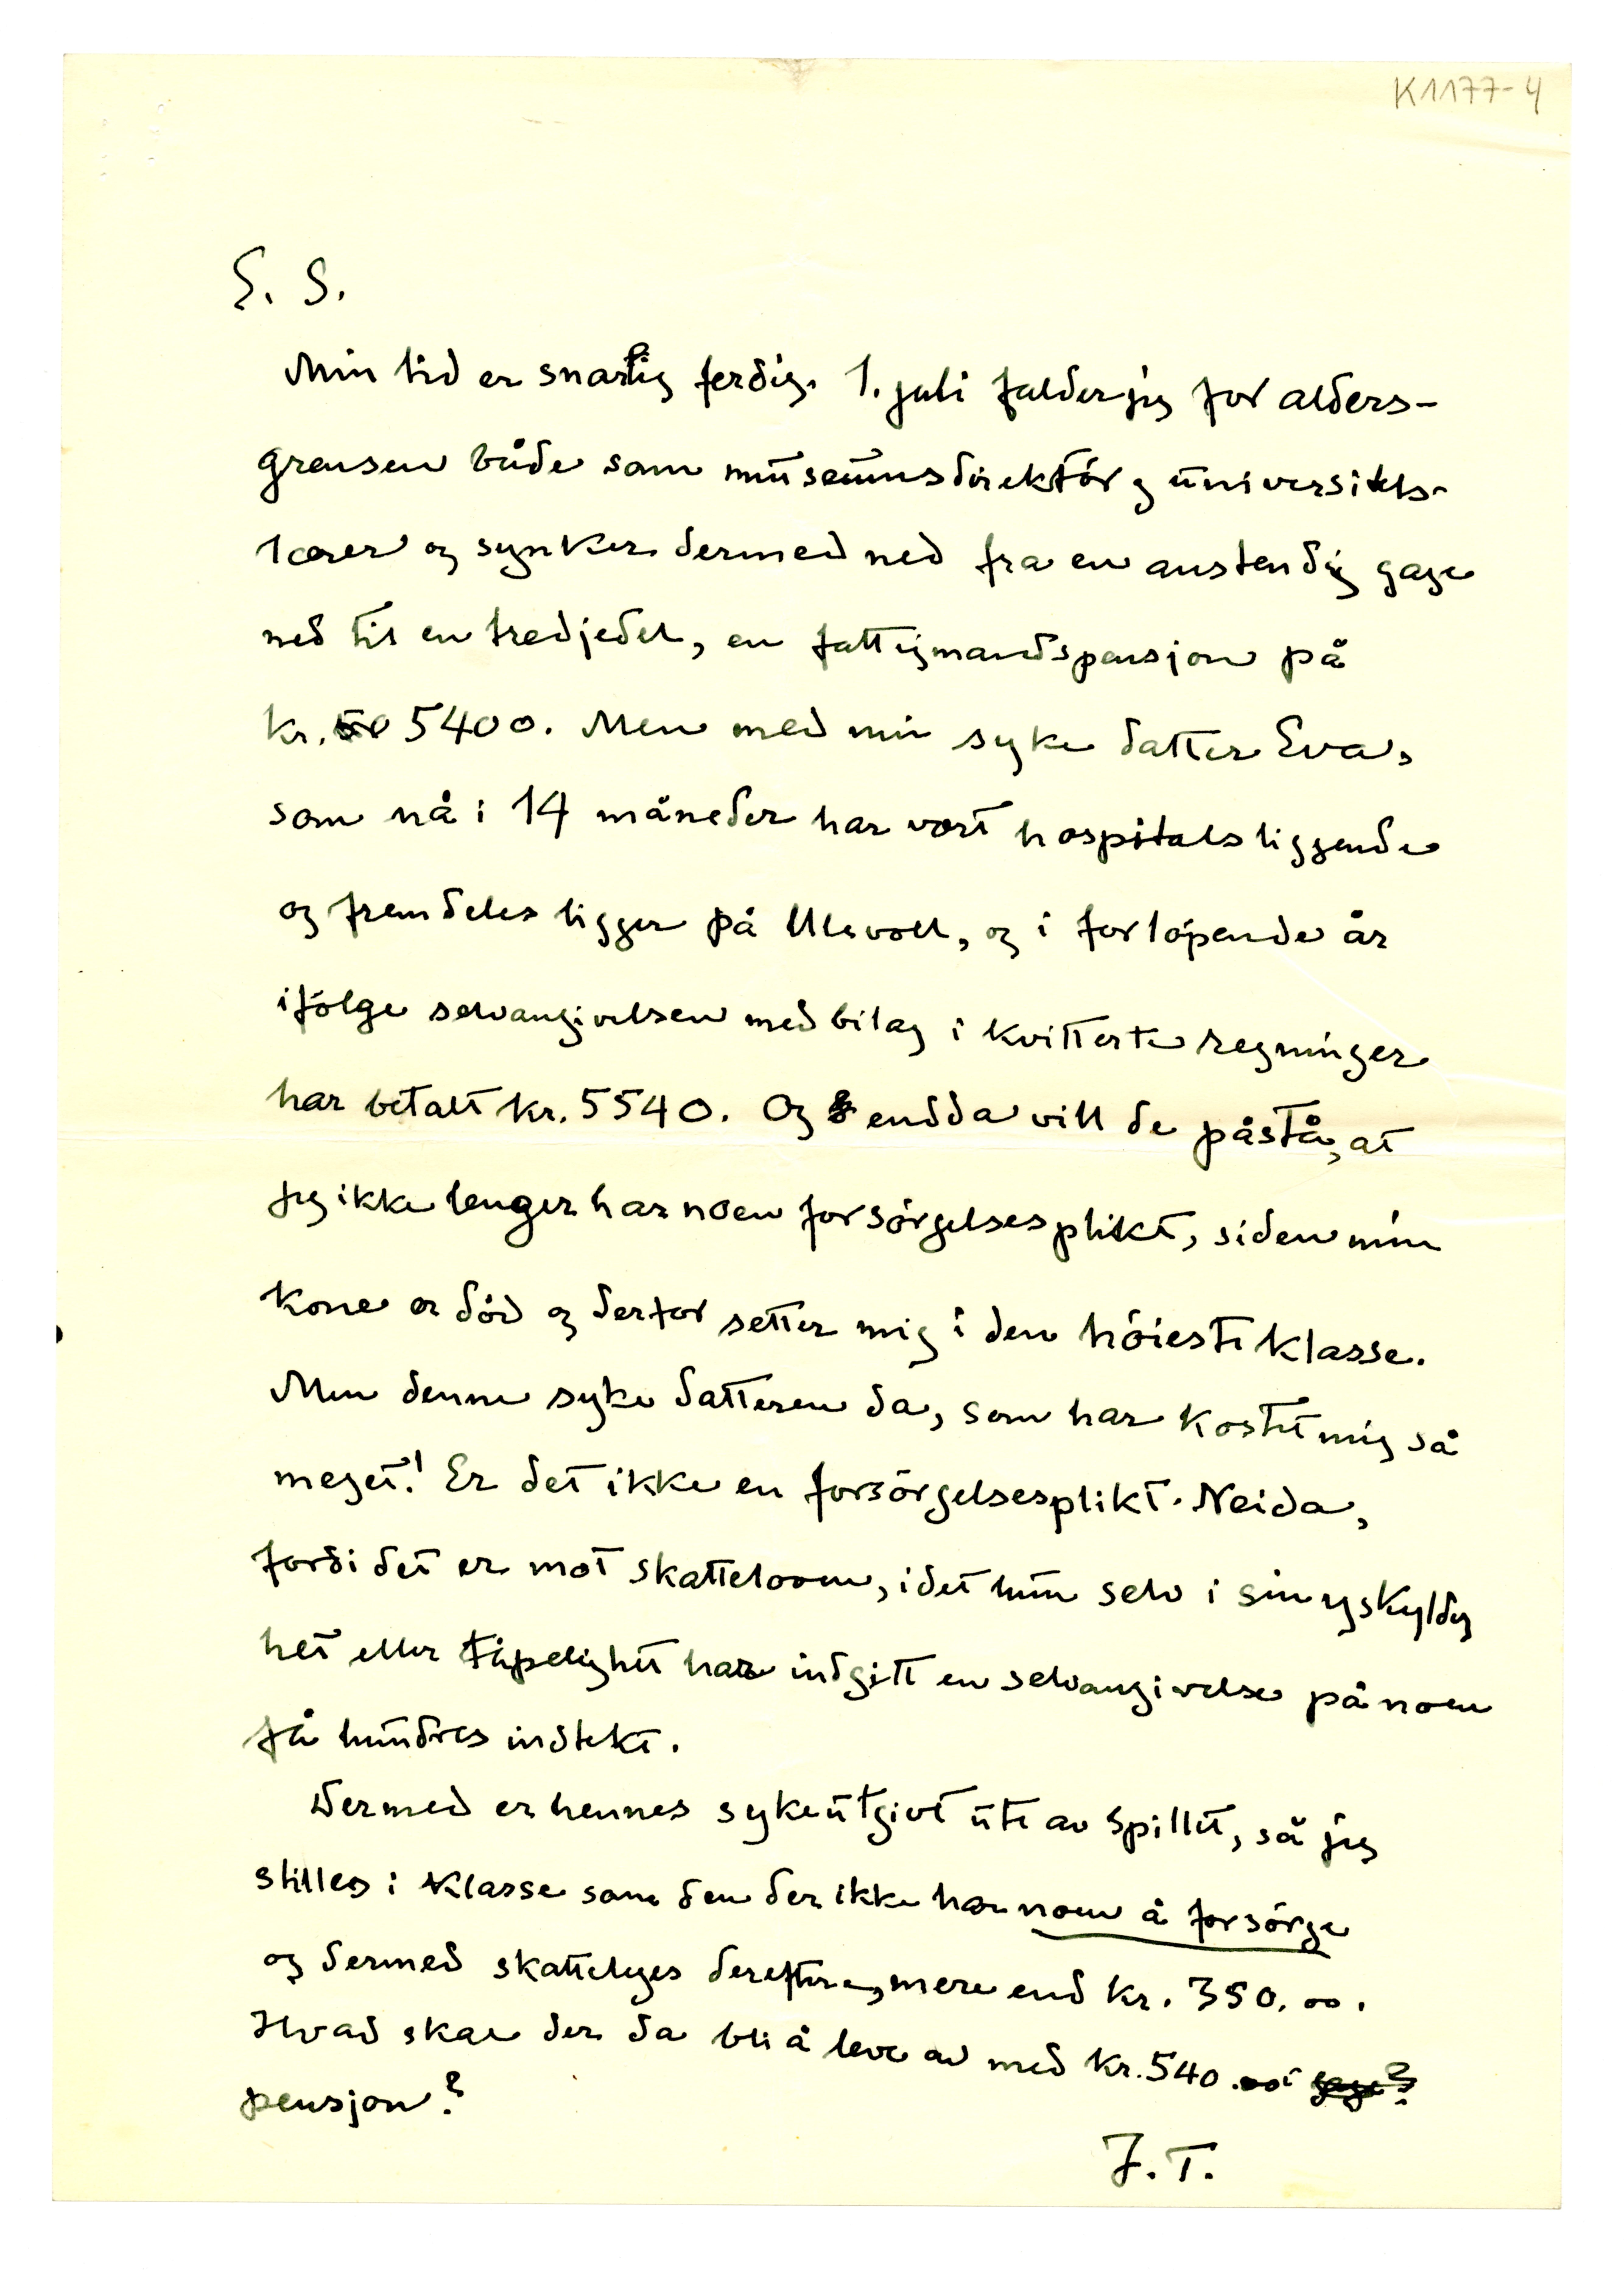 K1177-4
S. S.
Min tid er snarlig ferdig. 1. juli falder jeg for alders-
grensen både som museumsdirektör og universitets-
lærer og synker dermed ned fra en anstendig gage
ned til en tredjedel, en fattigmandspensjon på
kr. 50 5400. Men med min syke datter Eva,
som nå i 14 måneder har vært hospitalsliggende
og fremdeles ligger på Ullevoll, og i forlöpende år
ifölge selvangivelsen med bilag i kvitterte regninger
har betalt kr. 5540. Og endda vill de påstå, at
jeg ikke lenger har noen forsörgelsesplikt, siden min
kone er död og derfor setter mig i den höieste klasse.
Men denne syke datteren da, som har kostet mig så
meget! Er det ikke en forsörgelsesplikt. Neida,
fordi det er mot skatteloven, idet hun selv i sin uskyldig
het eller tåpelighet har indgitt en selvangivelse på noen
få hundres indtekt.
Dermed er hennes sykeutgivt ute av spillet, så jeg
stilles i klasse som den der ikke har noen å forsörge
og dermed skattelegges derefter, mere end kr. 350.00.
Hvad skal der da bli å leve av med kr. 540.00 i gage?
pensjon?
J. T.